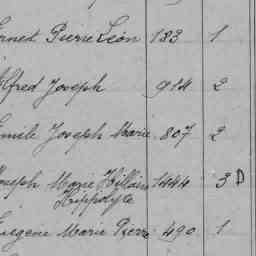 ernest Pierre Léon 183 1
lfred Joseph 914 2
mile Joseph Marie 807 2
oseph Marie Hillaire 1444 3 D
Hippolyte
ugène Marie Pierre 490 1